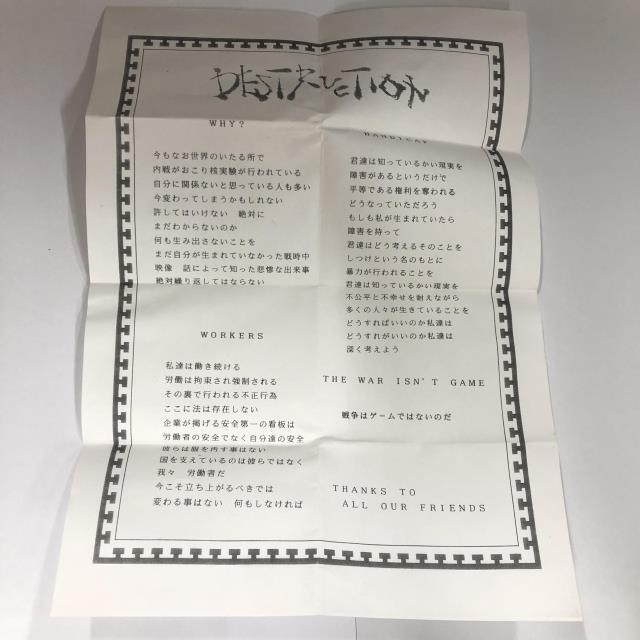 DESTRUCTION
WHY?
今もなお世界のいたる所で
内戦がおこり核実験が行われている
自分に関係ないと思っている人も多い
今変わってしまうかもしれない
許してはいけない 絶対に
まだわからないのか
何も生み出さないことを
まだ自分が生まれていなかった戦時中
映像 話によって知った悲惨な出来事
絶対繰り返してはならない
WORKERS
私達は働き続ける
労働は拘束され強制される
その裏で行われる不正行為
ここに法は存在しない
企業が掲げる安全第一の看板は
労働者の安全でなく自分達の安全
彼らは服を汚す事はない
国を支えているのは彼らではなく
我々 労働者だ
今こそ立ち上がるべきでは
変わる事はない 何もしなければ
HANDICAP
君達は知っているかい現実を
障害があるというだけで
平等である権利を奪われる
どうなっていただろう
もしも私が生まれていたら
障害を持って
君達はどう考えるそのことを
しつけという名のもとに
暴力が行われることを
君達は知っているかい現実を
不公平と不幸せを耐えながら
多くの人々が生きていることを
どうすればいいのか私達は
どうすれがいいのか私達は
深く考えよう
THE WAR ISN'T GAME
戦争はゲームではないのだ
THANKS TO
ALL OUR FRIENDS